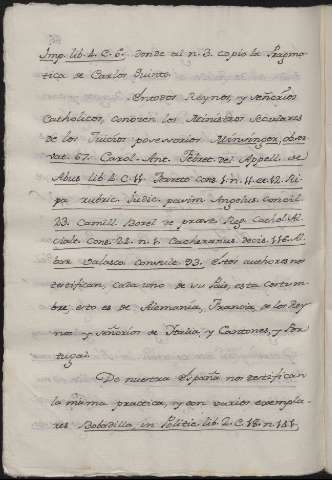 Imp. lib. 4. C. 6. donde al n. 3. copia la Pragma-
tica de Carlos Quinto.
En todos Reynos, y señorios
Catholicos, conocen los Ministros Seculares
de los Juicios posesorios Minsinger, obser
vat. 67. Carol. Ant. Febret. del Appell. de
Abus lib. 4. C. 11. Parreto Cons. 1. n. 11. et 12. Ri-
pa rubric. Iudic. pasim Angelus Concil.
23. Camill. Borel de præst. Reg. Cathol.
Cons. 22. n. 1. Cacheranus decis. 116. Al
bar Valasco Consult. 93. Estos authores nos
certifican, cada uno de su Pais, esta costum
bre, esto es de Alemania, Francia, de los Rey
nos y señorios de Italia, y Cantones, y Por
tugal.
De nuestra España nos certifican
la misma practica, y con varios exempla-
res Bobadilla, in Politic. lib. 2. C. 18. n. 141.